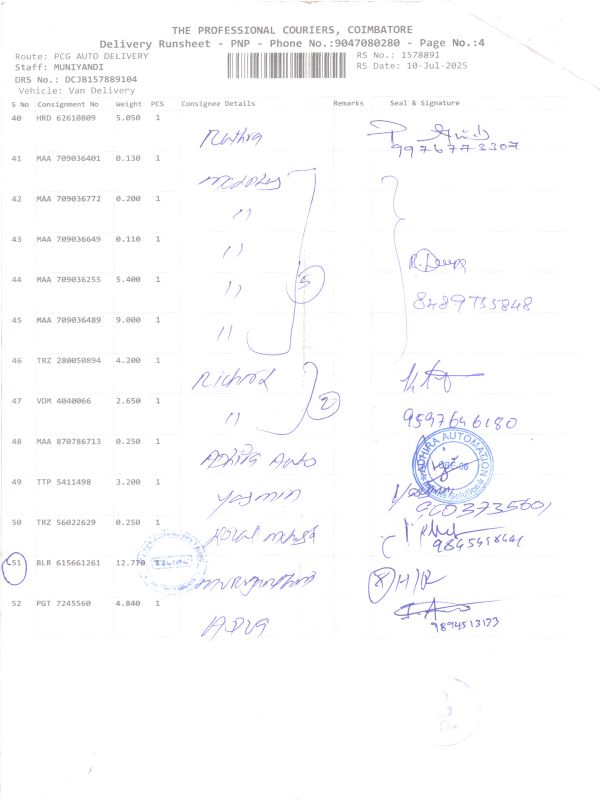 THE PROFESSIONAL COURIERS, COIMBATORE
Delivery Runsheet - PNP - Phone No.:9047080280 - Page No.:4
Route: PCG AUTO DELIVERY RS No.: 1578891
Staff: MUNIYANDI RS Date: 10-Jul-2025
DRS No.: DCJB157889104
Vehicle: Van Delivery
S No Consignment No Weight PCS Consignee Details Remarks Seal & Signature
40 HRD 62610809 5.050 1
9976773307
41 MAA 709036401 0.130 1
42 MAA 709036772 0.200 1 "
43 MAA 709036649 0.110 1 "
R. Deepa
44 MAA 709036255 5.400 1 " 5
8489735848
45 MAA 709036489 9.000 1 "
46 TRZ 280050894 4.200 1
Richard
47 VDM 4040066 2.650 1 " 2
9597646180
48 MAA 870786713 0.250 1
ADHIRA AUTOMATION
Auto
49 TTP 5411498 3.200 1
Yasmin
50 TRZ 56022629 0.250 1
51 BLR 615661261 12.770
52 PGT 7245560 4.840 1
9894513133